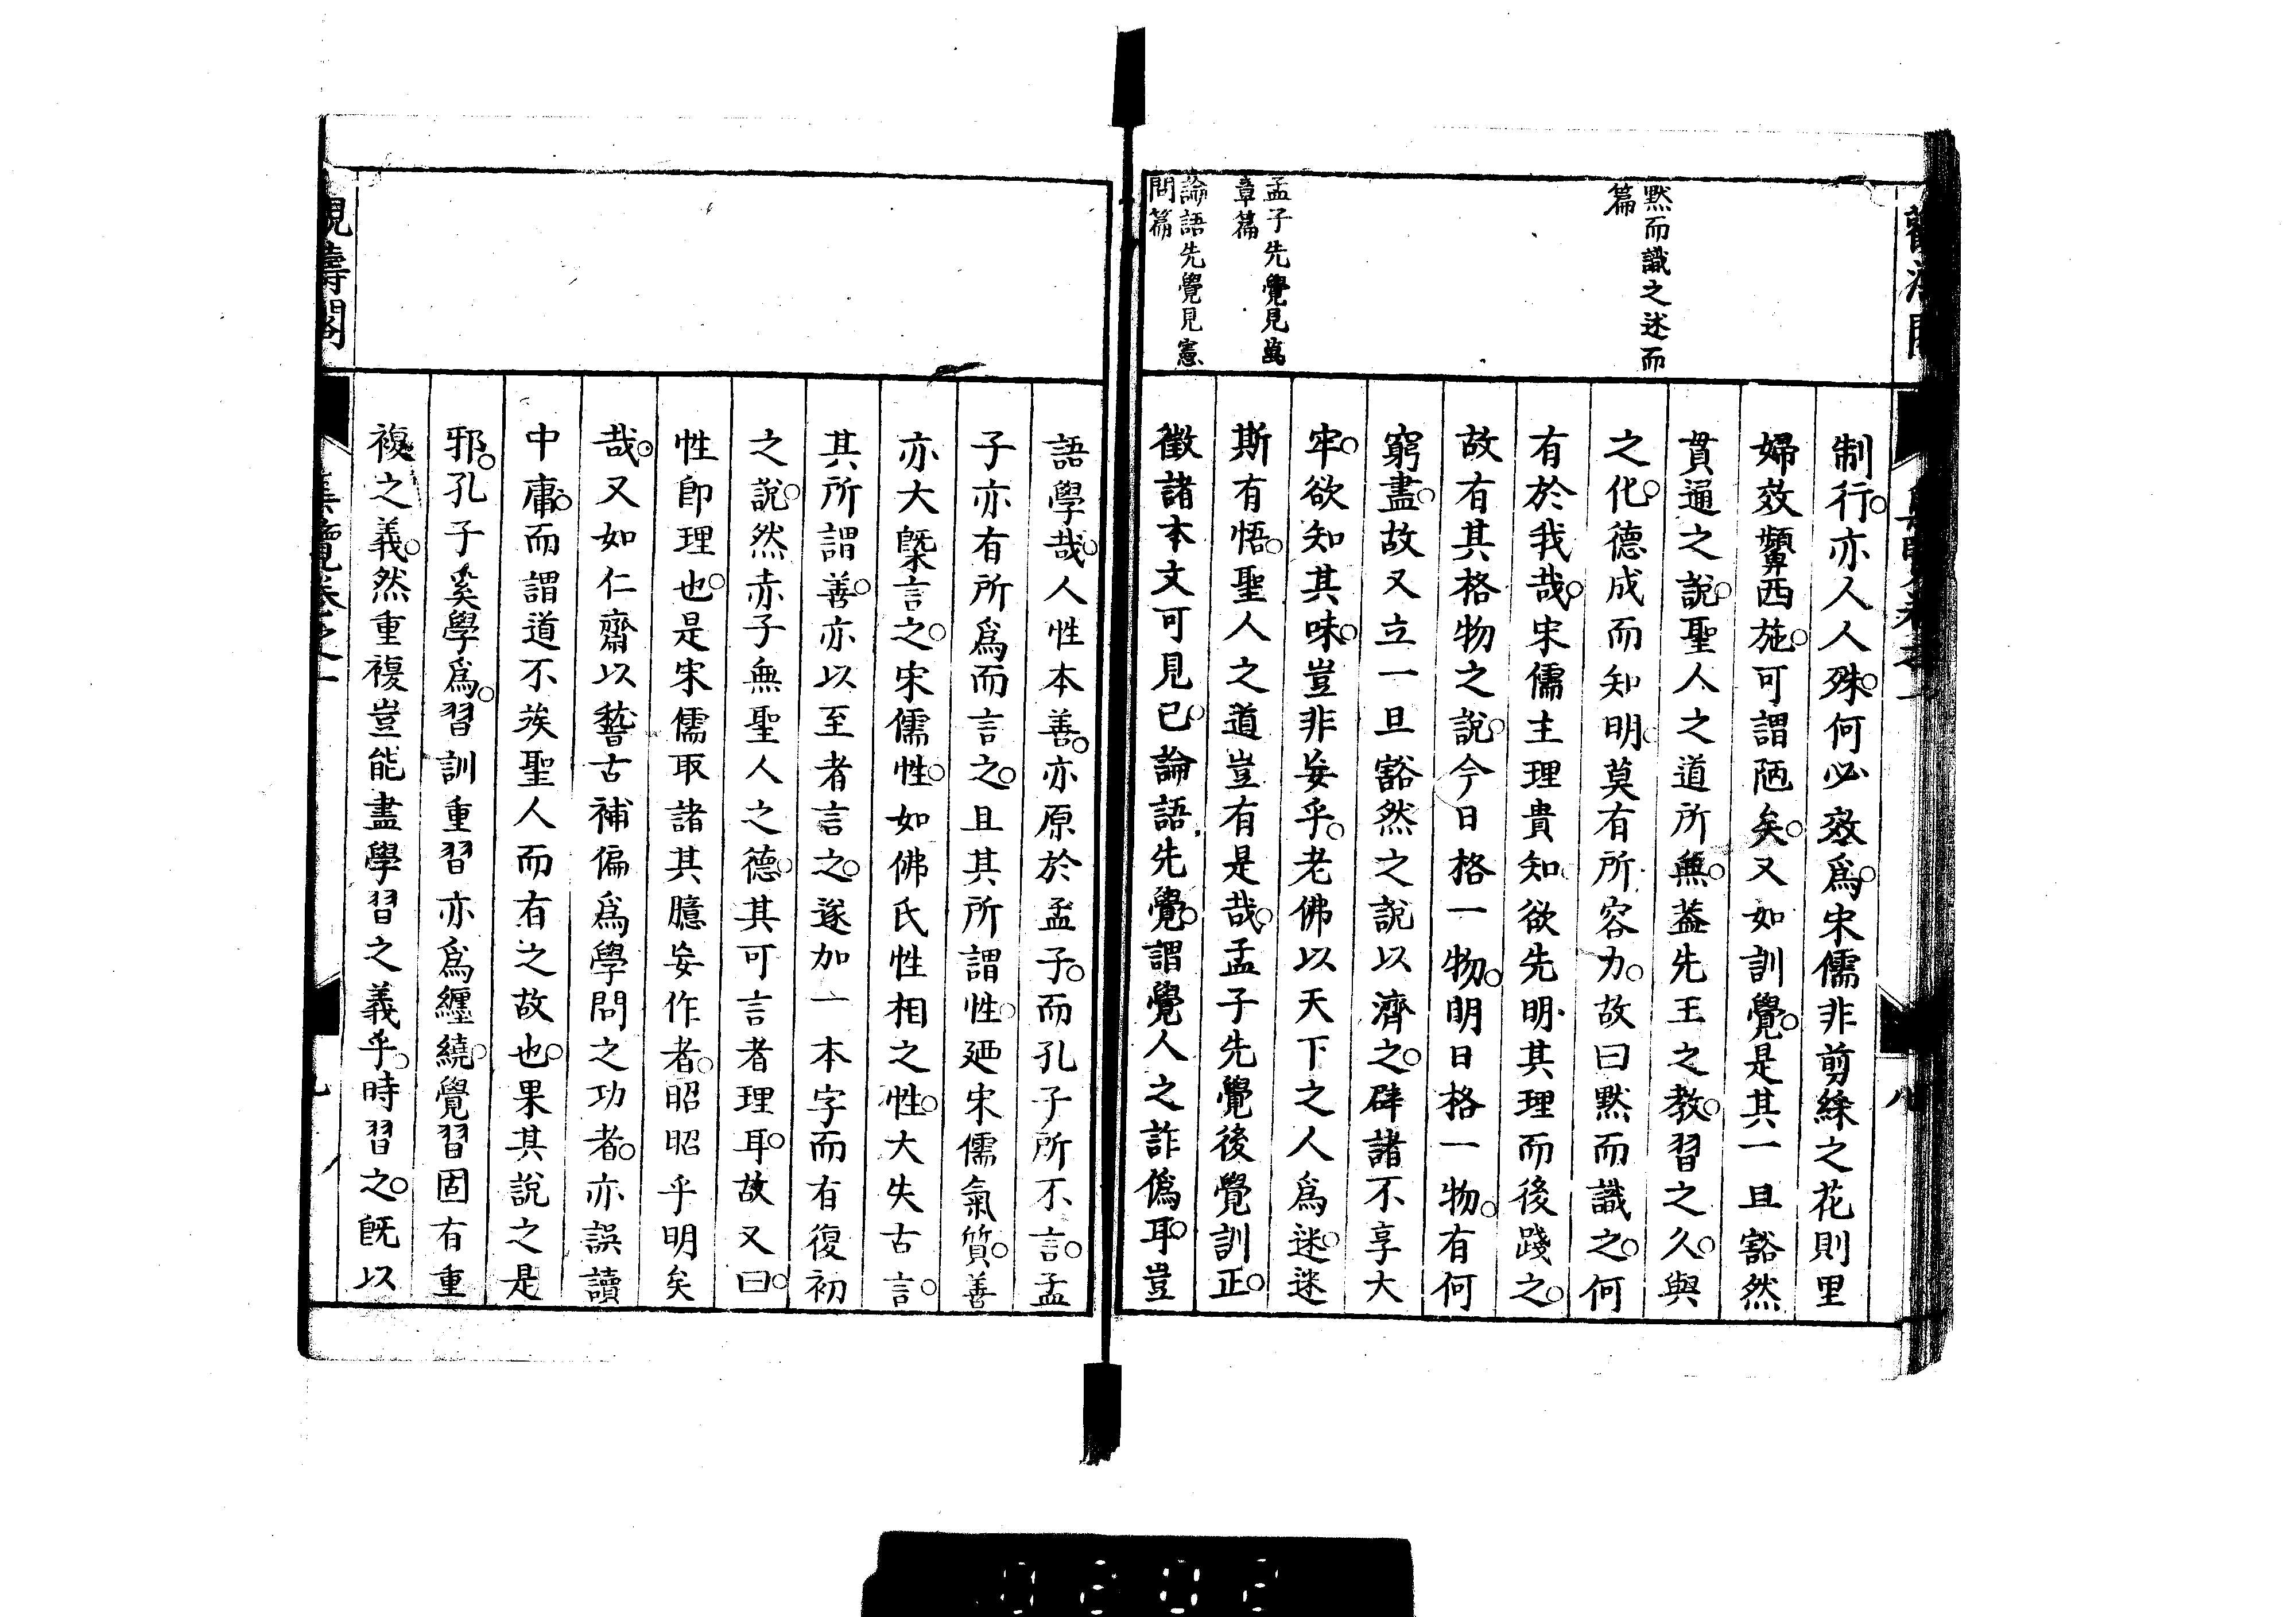 黙而識之述而
篇
孟子先覺見萬
章篇
論語先覺見憲
問篇
制行。亦人人殊。何必效爲。宋儒非剪綵之花則里
婦效顰西施。可謂陋矣。又如訓覺。是其一旦豁然
貫通之說。聖人之道所無。蓋先王之教。習之久。與
之化。德成而知明。莫有所容力。故曰黙而識之。何
有於我哉。宋儒主理貴知。欲先明其理而後踐之。
故有其格物之說。今日格一物。明日格一物。有何
窮盡。故又立一旦豁然之說以濟之。辟諸不享大
牢。欲知其味。豈非妄乎。老佛以天下之人爲迷。迷
斯有悟。聖人之道豈有是哉。孟子先覺後覺訓正。
徵諸本文可見已。論語先覺。謂覺人之詐僞耳。豈
語學哉。人性本善。亦原於孟子。而孔子所不言。孟
子亦有所爲而言之。且其所謂性。廼宋儒氣質。善
亦大槩言之。宋儒性。如佛氏性相之性。大失古言。
其所謂善。亦以至者言之。遂加一本字而有復初
之說。然赤子無聖人之德。其可言者理耳。故又曰。
性卽理也。是宋儒取諸其臆妄作者。昭昭乎明矣
哉。又如仁齋以稽古補偏爲學問之功者。亦誤讀
中庸。而謂道不俟聖人而有之故也。果其說之是
邪。孔子奚學爲。習訓重習亦爲纏繞。覺習固有重
複之義。然重複豈能盡學習之義乎。時習之。旣以
觀濤閣
九
八